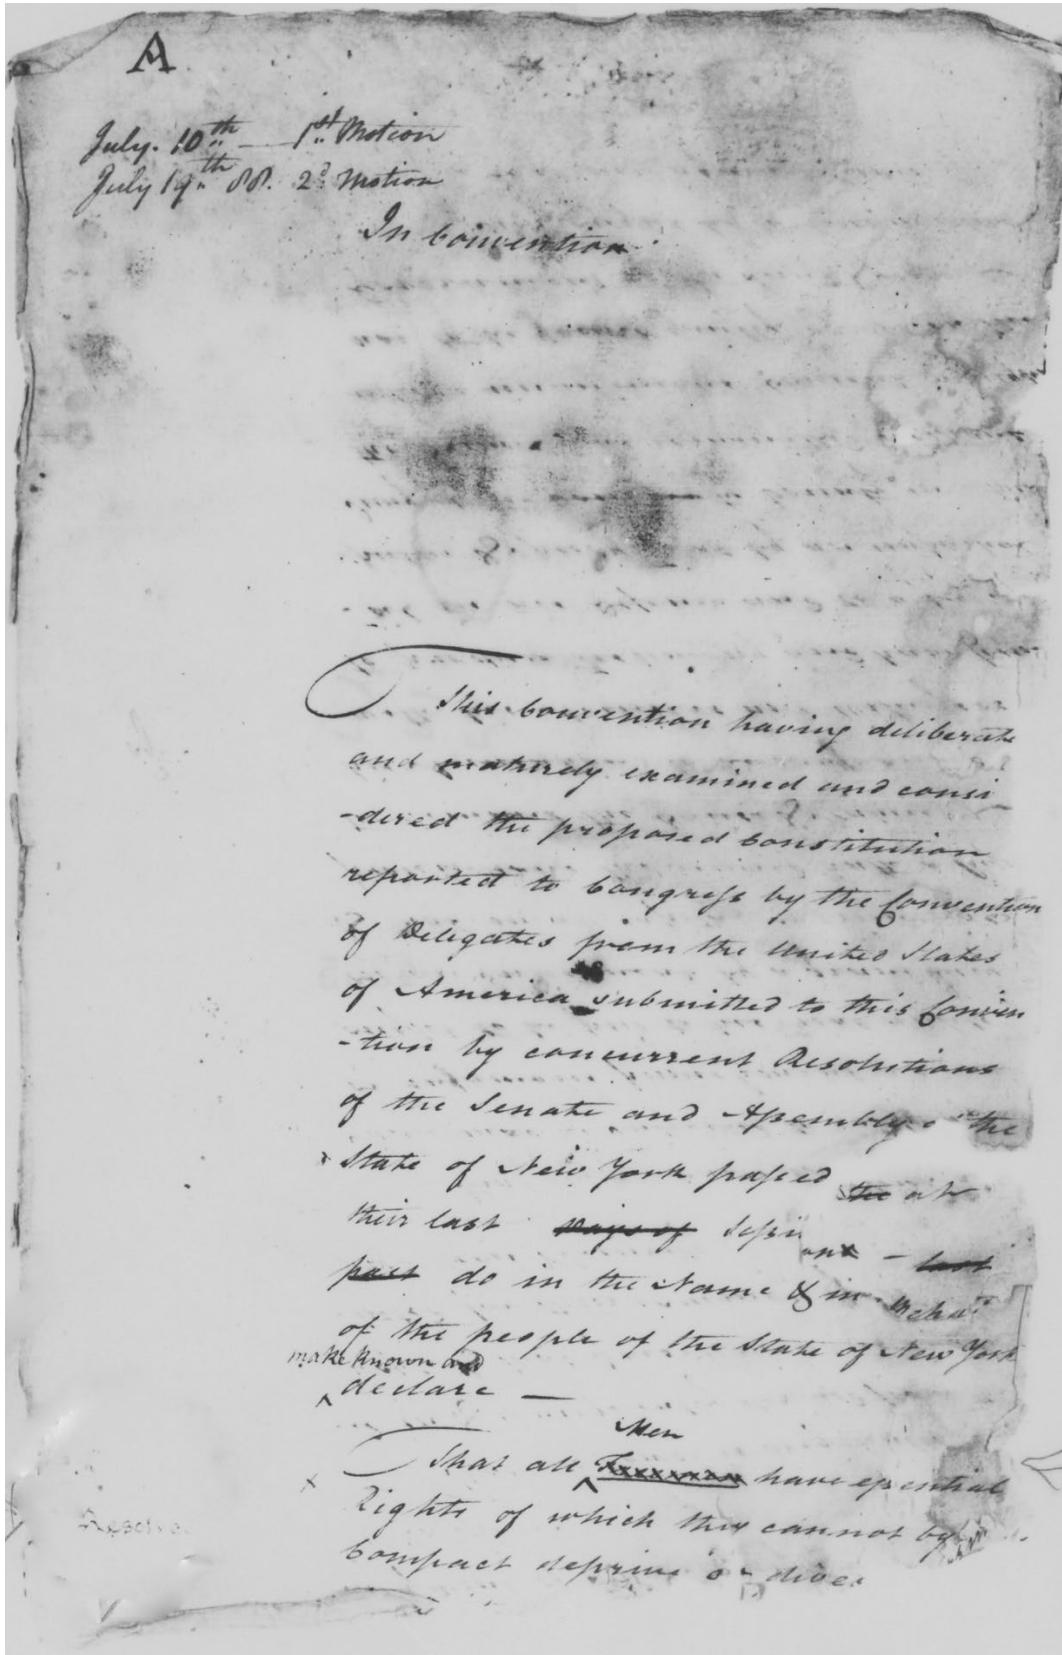 A
July. 10th — 1st Motion
July 19th 88. 2d Motion
In Convention
This Convention having deliberate
and maturely examined and consi
-dered the proposed Constitution
reported to Congress by the Convention
of Delegates from the United States
of America submitted to this Conven
-tion by concurrent Resolutions
of the Senate and Assembly the
x State of New York passed the at
their last days of Sessi on - last
past do in the Name & in Beha
of the people of the State of New York
make known and
declare —
Men
That all have essential
x Rights of which they cannot by
Compact deprive or dives